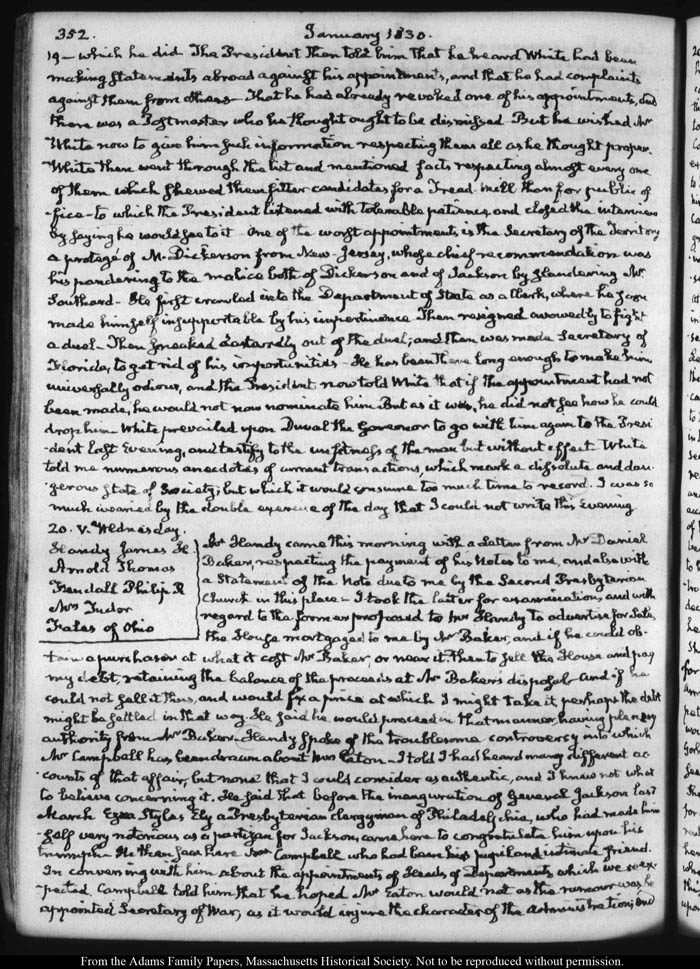 352. January 1830.
19 – which he did. The President then told him that he heard White had been
making statements abroad against his appointments, and that he had complaints
against them from others – That he had already revoked one of his appointments, and
there was a Postmaster who he thought ought to be dismissed – But he wished Mr
White now to give him such information respecting them all as he thought proper.
White then went through the list and mentioned facts respecting almost every one
of them which shewed them fitter candidates for a Tread-mill than for public of-
-fice – to which the President listened with tolerable patience, and closed the interview
by saying he would see to it. One of the worst appointments is the Secretary of the Territory
a protegé of M. Dickerson from New-Jersey, whose chief recommendation was
his pandering to the malice both of Dickerson and of Jackson by slandering Mr
Southard – He first crawled into the Department of State as a Clerk, where he soon
made himself insupportable by his impertinence. Then resigned avowedly to fight
a duel – Then sneaked dastardly out of the duel; and then was made Secretary of
Florida, to get rid of his importunities – He has been there long enough to make him
universally odious, and the President now told White that if the appointment had not
been made, he would not now nominate him. But as it was, he did not see how he could
drop him. White prevailed upon Duval the Governor to go with him again to the Presi-
-dent last Evening, and testify to the unfitness of the man but without effect. White
told me numerous anecdotes of current transactions, which mark a dissolute and dan-
-gerous state of Society; but which it would consume too much time to record. I was so
much wearied by the double exercise of the day that I could not write this Evening
20. V. Wednesday.
Handy James H
Arnold Thomas
Fendall Philip R
Mrs Tudor
Fates of Ohio
Mr Handy came this morning with a Letter from Mr Daniel
Baker, respecting the payment of his Notes to me, and also with
a Statement of the Note due to me by the Second Presbyterian
Church in this place – I took the latter for examination, and with
regard to the former proposed to Mr Handy to advertise for Sale,
the House mortgaged to me by Mr Baker, and if he could ob-
-tain a purchaser at what it cost Mr Baker, or near it, then to sell the House and pay
my debt, retaining the balance of the proceeds at Mr Baker's disposal – And if he
could not sell it thus, and would fix a price at which I might take it, perhaps the debt
might be settled in that way. He said he would proceed in that manner, having plenary
authority from Mr Baker. Handy spoke of the troublesome controversy into which
Mr Campbell has been drawn about Mrs Eaton – I told I had heard many different ac-
-counts of that affair, but none that I could consider as authentic, and I knew not what
to believe concerning it. He said that before the inauguration of General Jackson last
March Ezra Styles Ely a Presbyterian clergyman of Philadelphia, who had made him-
-self very notorious as a partizan for Jackson, came here to congratulate him upon his
triumph – He then saw here Mr Campbell who had been his pupil and intimate friend.
In conversing with him about the appointments of Heads of Departments which were ex-
-pected, Campbell told him that he hoped Mr Eaton would not as the rumour was be
appointed Secretary of War, as it would injure the character of the Administration; and
From the Adams Family Papers, Massachusetts Historical Society. Not to be reproduced without permission.